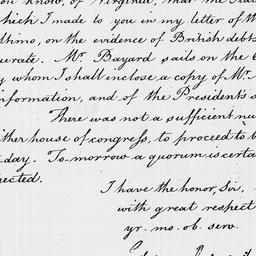 know, of Virginia, that the
which I made to you in my letter of
timo, on the evidence of British debts
urate. Mr. Bayard sails on the
y whom I shall inclose a copy of Mr.
nformation, and of the President's
There was not a sufficient nu
ither house of congress, to proceed to b
-day. To-morrow a quorum is certa
pected.
I have the honor, Sir,
with great respect
yr. mo. ob. serv.